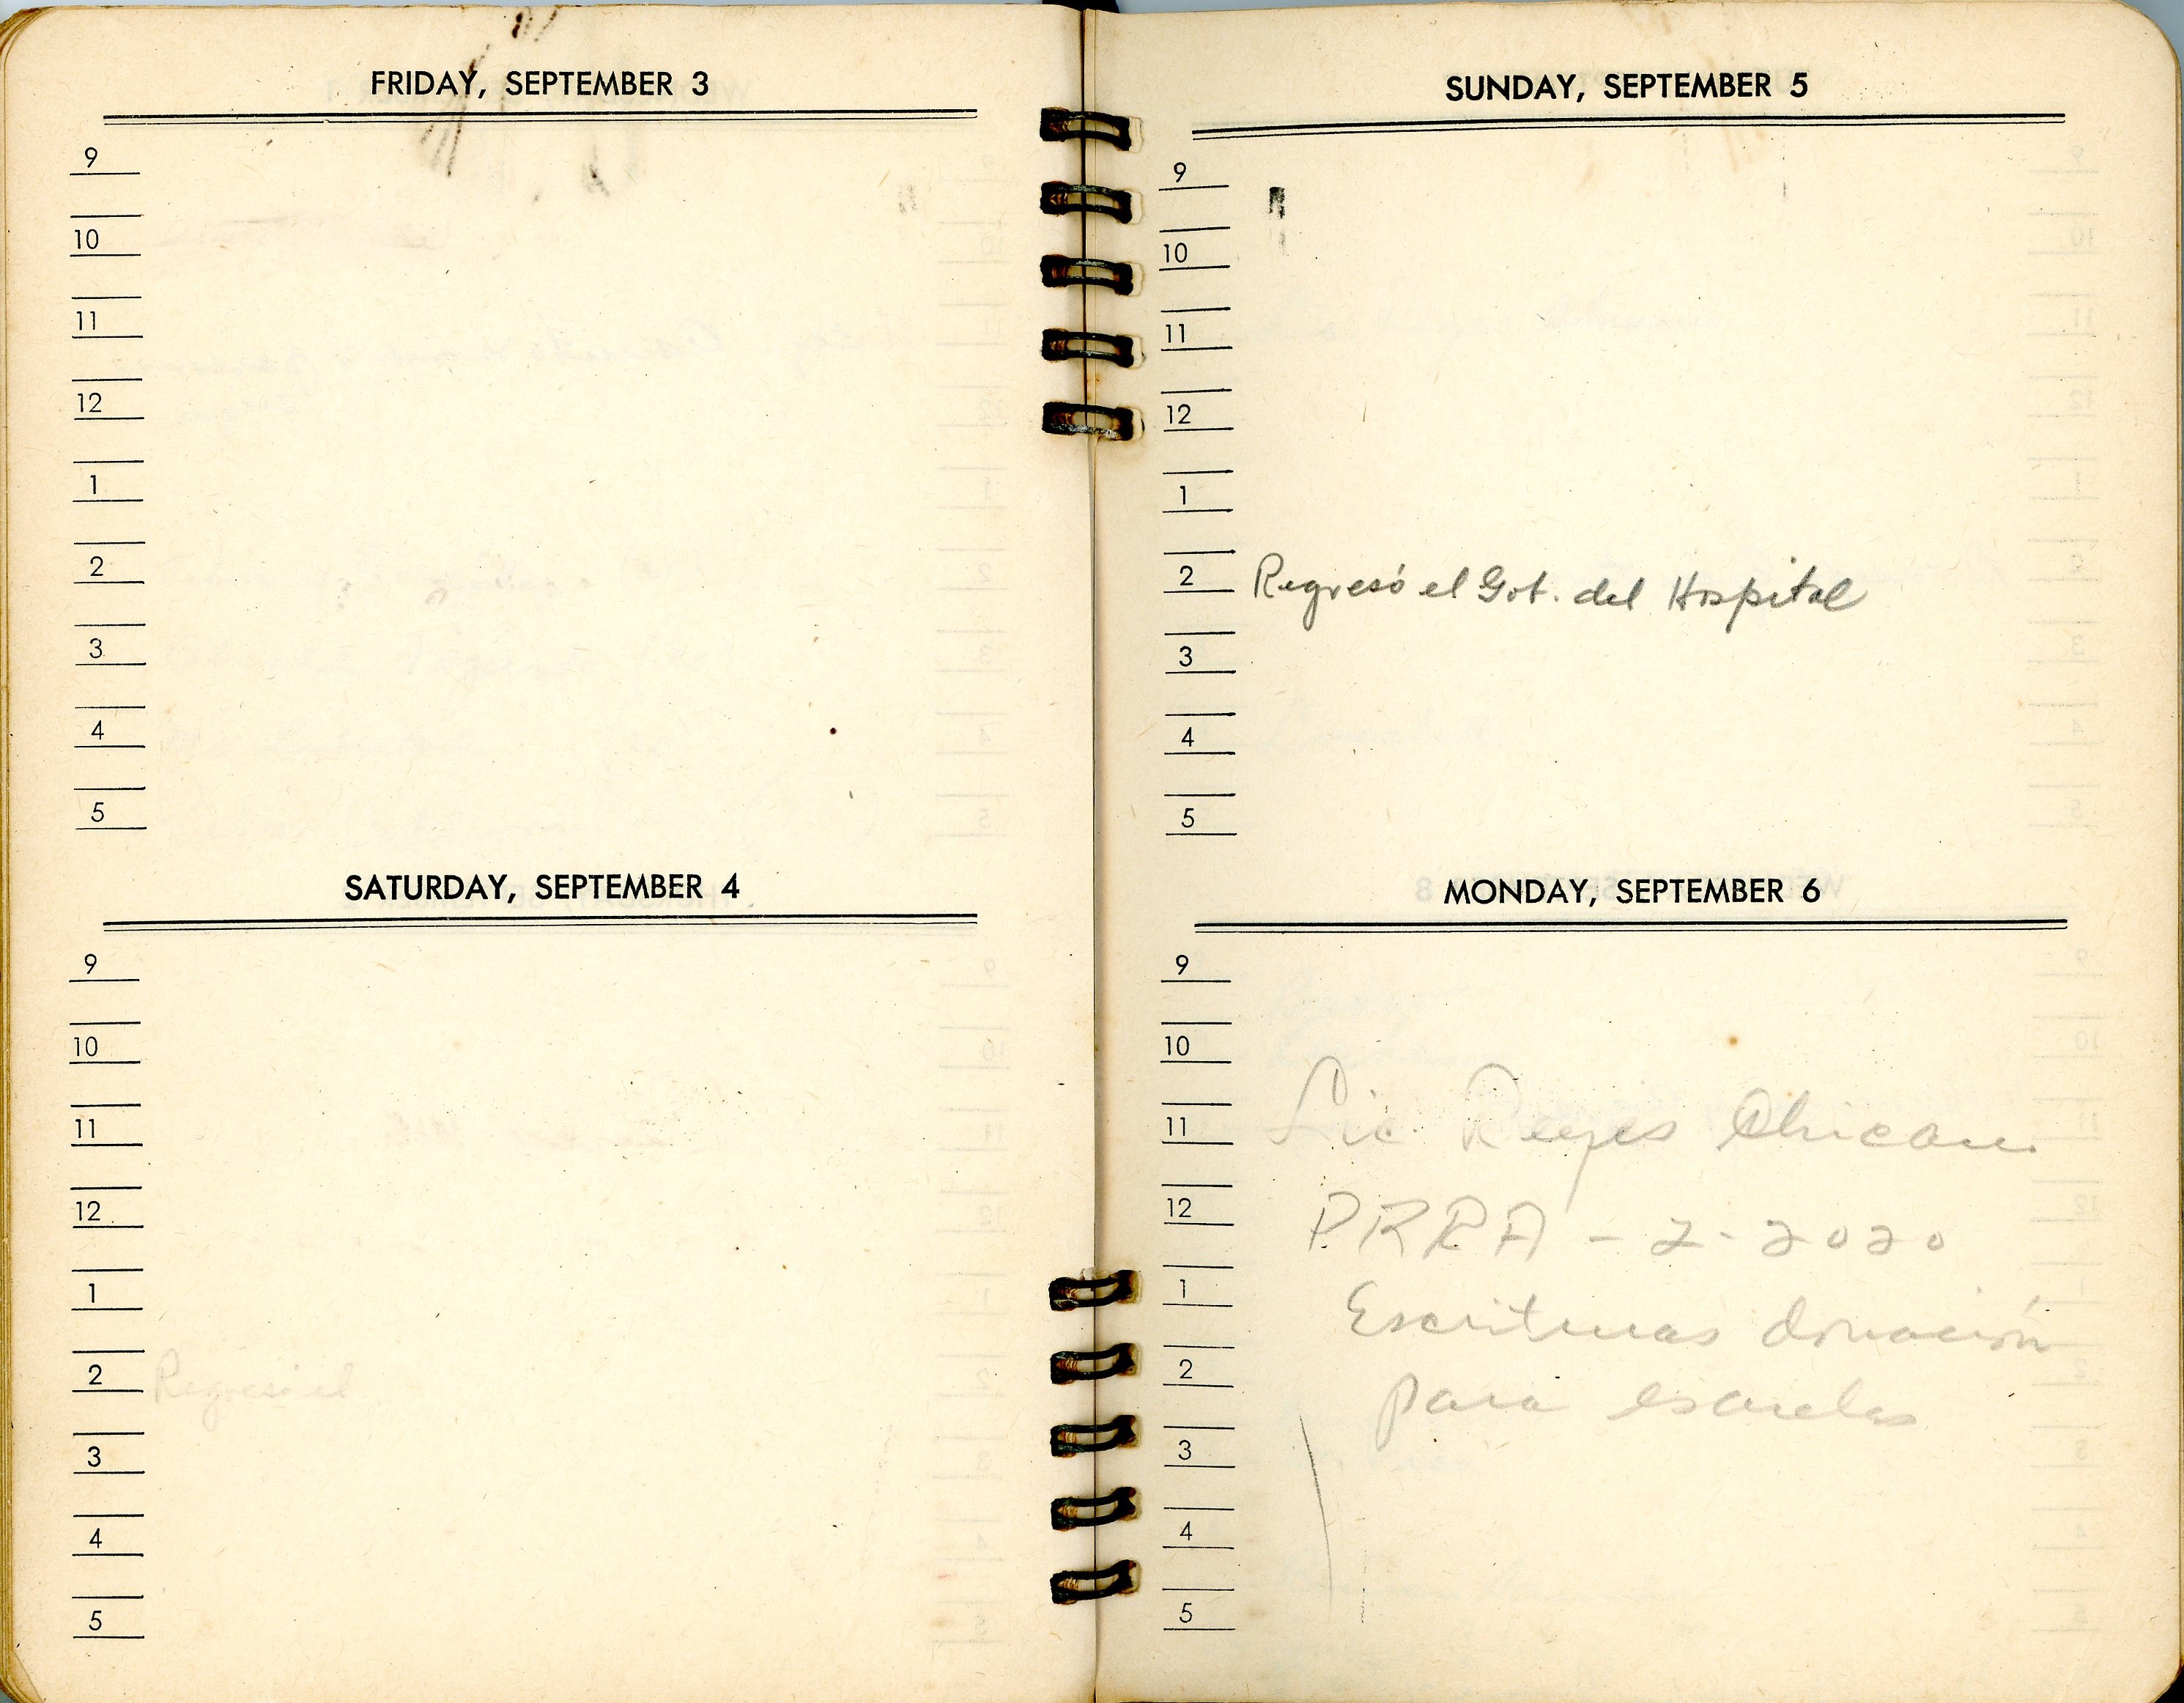 FRIDAY, SEPTEMBER 3
9
10
11
12
1
2
3
4
5
SATURDAY, SEPTEMBER 4
9
10
11
12
1
2 Regresó el
3
4
5
SUNDAY, SEPTEMBER 5
9
10
11
12
1
2 Regresó el Gob. del Hospital
3
4
5
MONDAY, SEPTEMBER 6
9
10
11 Lic Reyes
12 PRRA - 2-2020
1 Escrituras donación
2 para escuelas
3
4
5